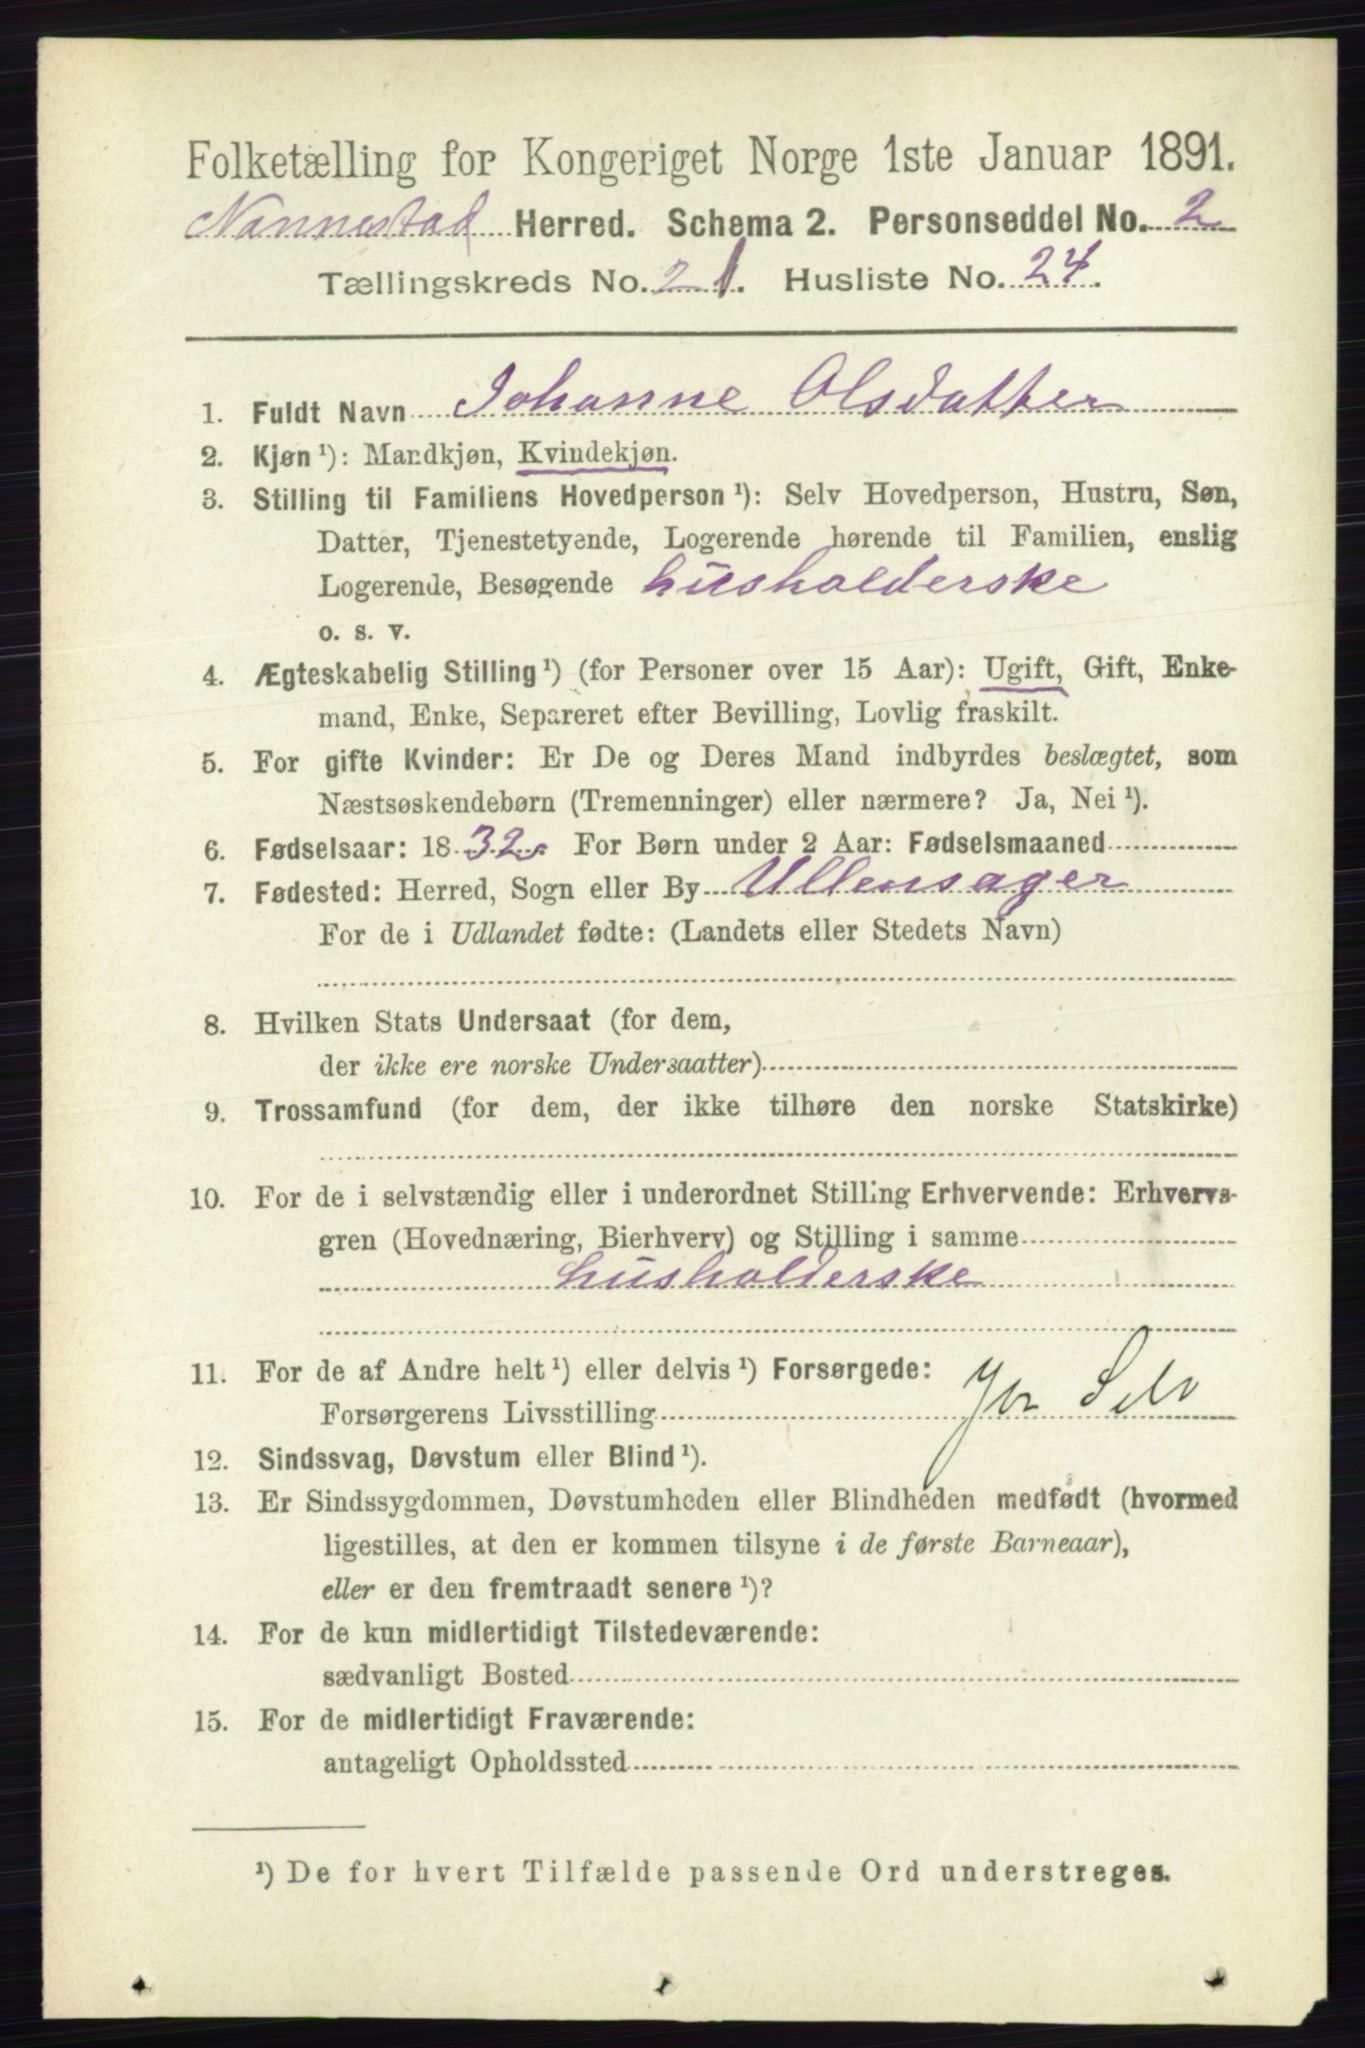 Folketælling for Kongeriget Norge 1ste Januar 1891.
Nannestad Herred. Schema 2. Personseddel No. 2
Tællingskreds No. 21. Husliste No. 24.
1. Fuldt Navn Johanne Olsdatter
2. Kjøn ¹): Mandkjøn, Kvindekjøn.
3. Stilling til Familiens Hovedperson ¹): Selv Hovedperson, Hustru, Søn,
Datter, Tjenestetyende, Logerende hørende til Familien, enslig
Logerende, Besøgende husholderske
o. s. v.
4. Ægteskabelig Stilling ¹) (for Personer over 15 Aar): Ugift, Gift, Enke-
mand, Enke, Separeret efter Bevilling, Lovlig fraskilt.
5. For gifte Kvinder: Er De og Deres Mand indbyrdes beslægtet, som
Næstsøskendebørn (Tremenninger) eller nærmere? Ja, Nei ¹).
6. Fødselsaar: 1832. For Børn under 2 Aar: Fødselsmaaned
7. Fødested: Herred, Sogn eller By Ullensager
For de i Udlandet fødte: (Landets eller Stedets Navn)
8. Hvilken Stats Undersaat (for dem,
der ikke ere norske Undersaatter)
9. Trossamfund (for dem, der ikke tilhøre den norske Statskirke)
10. For de i selvstændig eller i underordnet Stilling Erhvervende: Erhvervs-
gren (Hovednæring, Bierhverv) og Stilling i samme
husholderske
11. For de af Andre helt ¹) eller delvis ¹) Forsørgede:
Forsørgerens Livsstilling Selv
12. Sindssvag, Døvstum eller Blind ¹).
13. Er Sindssygdommen, Døvstumheden eller Blindheden medfødt (hvormed
ligestilles, at den er kommen tilsyne i de første Barneaar),
eller er den fremtraadt senere ¹)?
14. For de kun midlertidigt Tilstedeværende:
sædvanligt Bosted
15. For de midlertidigt Fraværende:
antageligt Opholdssted
¹) De for hvert Tilfælde passende Ord understreges.